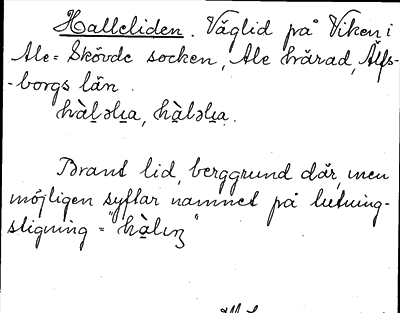 Halleliden. Väglid på Viken i
Ale-Skövde socken, Ale härad, Älfs-
-borgs län.
hàl̥əlia, hàl̥əlia.
Brant lid, berggrund där, men
möjligen syftar namnet på lutning-
stigning = "hàlıŋ"